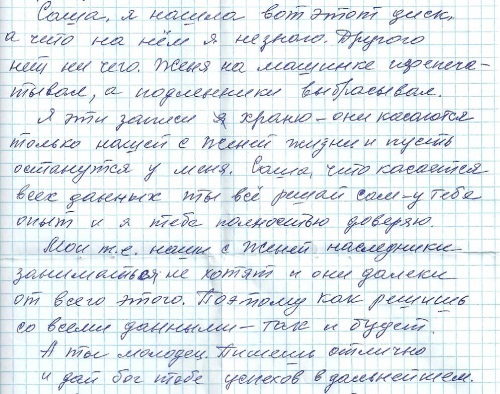 Саша, я нашла вот этот диск,
а что на нём я незнаю. Другого
нет ни чего. Женя на машинке пропеча-
тывал, а подленники выбрасывал.
Я эти записи я храню – они касаются
только нашей с Женей жизни и пусть
останутся у меня. Саша, что касается
всех данных ты всё решай сам – у тебя
опыт и я тебе полностью доверяю.
Мои т.е. наши с Женей наследники –
заниматься не хотят и они далеки
от всего этого. Поэтому как решишь
со всеми данными – так и будет.
А ты молодец. Пишешь отлично
и дай бог тебе успехов в дальнейшем.